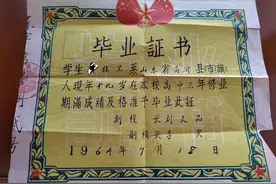 毕业証书
学生 林 系山东省 县(市)
人现年十九岁在本校高中三年修业
期满成绩及格准予毕业此証
校 长刘文
副校长李
1964年7月18日